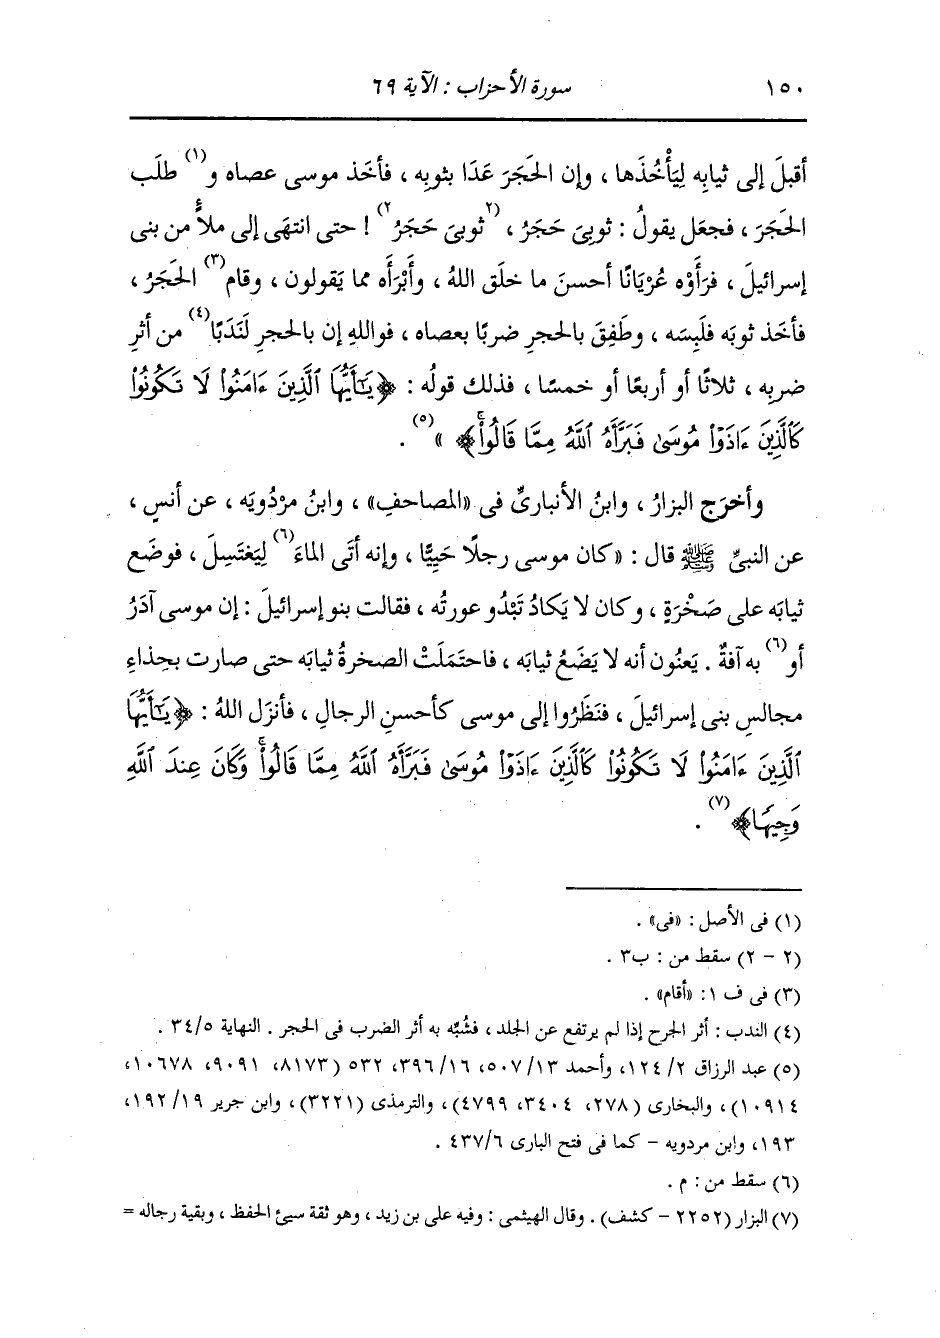 ١٥٠ سورة الأحزاب : الآية ٦٩
أقبلَ إلى ثيابِه لِيَأْخُذَها ، وإن الحَجَرَ عَدَا بثوبِه ، فأخَذ موسى عصاه و(١) طلَب
الحَجَرَ ، فجعَل يقولُ : ثوبىَ حَجَرُ ، (٢ثوبىَ حَجَرُ٢) ! حتى انتهَى إلى ملأٍ من بنى
إسرائيلَ ، فرَأَوْه عُرْيَانًا أحسنَ ما خلَق اللهُ ، وأَبْرَأَه مما يَقولون ، وقام(٣) الحَجَرُ ،
فأخَذ ثوبَه فلَبِسَه ، وطَفِقَ بالحجرِ ضربًا بعصاه ، فواللهِ إن بالحجرِ لَنَدَبًا(٤) من أثرِ
ضربِه ، ثلاثًا أو أربعًا أو خمسًا ، فذلك قولُه : ﴿يَٰٓأَيُّهَا ٱلَّذِينَ ءَامَنُوا۟ لَا تَكُونُوا۟
كَٱلَّذِينَ ءَاذَوْا۟ مُوسَىٰ فَبَرَّأَهُ ٱللَّهُ مِمَّا قَالُوا۟ۚ﴾ »(٥) .
وأخرَج البزارُ ، وابنُ الأنبارىِّ فى «المصاحفِ» ، وابنُ مرْدُويَه ، عن أنسٍ ،
عن النبىِّ ﷺ قال : «كان موسى رجلًا حَيِيًّا ، وإنه أتَى الماءَ(٦) لِيَغتَسِلَ ، فوضَع
ثيابَه على صَخْرَةٍ ، وكان لا يَكادُ تَبْدُو عورتُه ، فقالت بنو إسرائيلَ : إن موسى آدَرُ
أو(٦) به آفةٌ . يَعنُون أنه لا يَضَعُ ثيابَه ، فاحتَملَتْ الصخرةُ ثيابَه حتى صارت بحِذاءِ
مجالسِ بنى إسرائيلَ ، فنَظَرُوا إلى موسى كأحسنِ الرجالِ ، فأنزَل اللهُ : ﴿يَٰٓأَيُّهَا
ٱلَّذِينَ ءَامَنُوا۟ لَا تَكُونُوا۟ كَٱلَّذِينَ ءَاذَوْا۟ مُوسَىٰ فَبَرَّأَهُ ٱللَّهُ مِمَّا قَالُوا۟ۚ وَكَانَ عِندَ ٱللَّهِ
وَجِيهًا﴾(٧) .
(١) فى الأصل : «فى» .
(٢ - ٢) سقط من : ب٣ .
(٣) فى ف ١: «أقام» .
(٤) الندب : أثر الجرح إذا لم يرتفع عن الجلد ، فشُبِّه به أثر الضرب فى الحجر . النهاية ٣٤/٥ .
(٥) عبد الرزاق ٢/ ١٢٤، وأحمد ١٣/ ٥٠٧، ١٦/ ٣٩٦، ٥٣٢ (٨١٧٣، ٩٠٩١، ١٠٦٧٨،
١٠٩١٤) ، والبخارى (٢٧٨، ٣٤٠٤، ٤٧٩٩) ، والترمذى (٣٢٢١) ، وابن جرير ١٩/ ١٩٢،
١٩٣، وابن مردويه - كما فى فتح البارى ٤٣٧/٦ .
(٦) سقط من : م .
(٧) البزار (٢٢٥٢ - كشف) . وقال الهيثمى : وفيه على بن زيد ، وهو ثقة سيئ الحفظ ، وبقية رجاله =